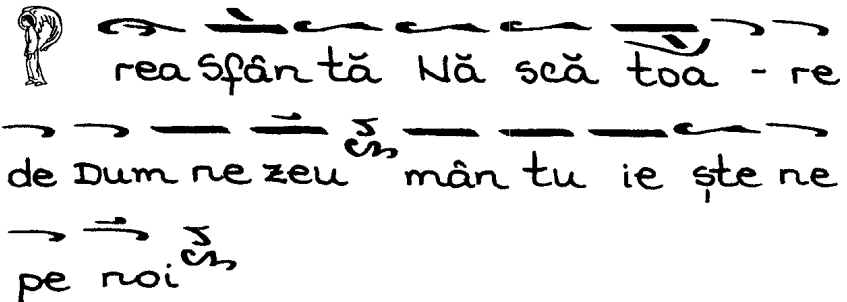 Prea Sfân tă Nă scă toa - re
de Dum ne zeu mân tu ie ște ne
pe noi